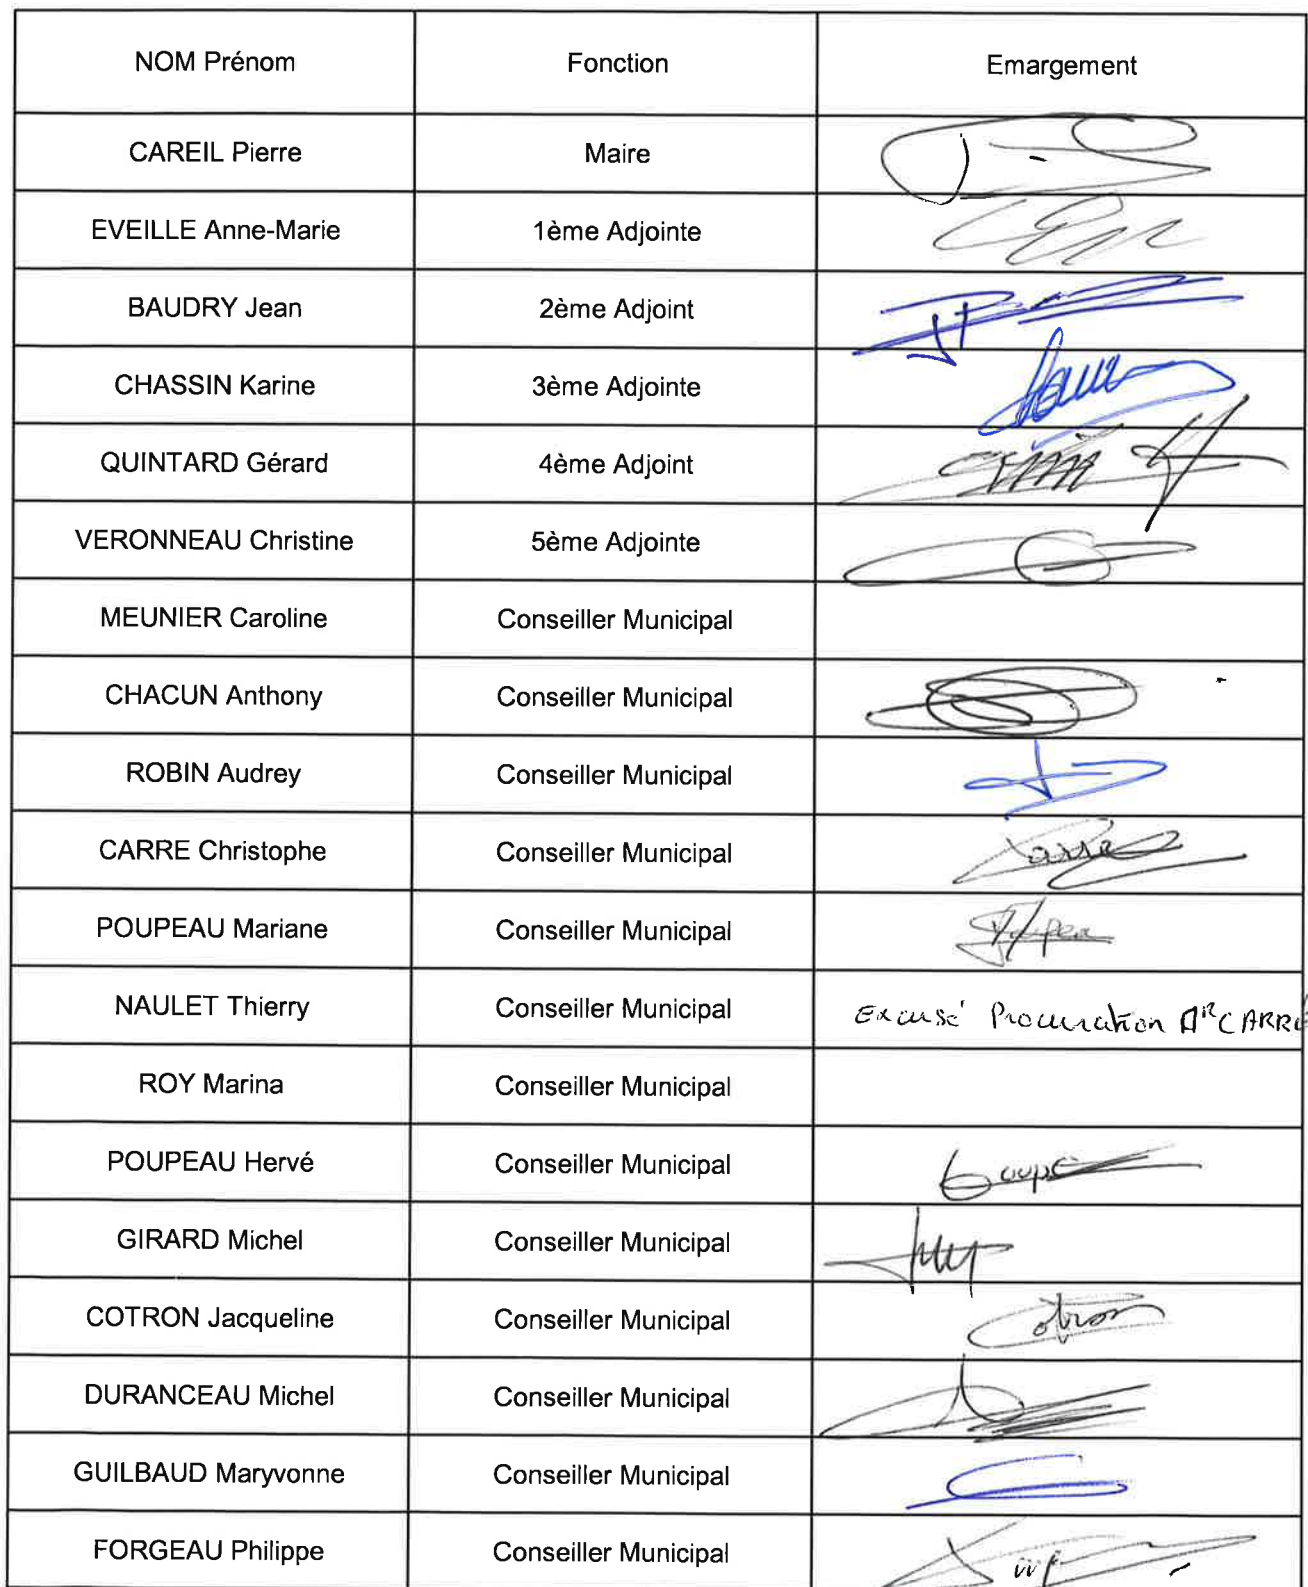 NOM Prénom Fonction Emargement
CAREIL Pierre Maire
EVEILLE Anne-Marie 1ème Adjointe
BAUDRY Jean 2ème Adjoint
CHASSIN Karine 3ème Adjointe
QUINTARD Gérard 4ème Adjoint
VERONNEAU Christine 5ème Adjointe
MEUNIER Caroline Conseiller Municipal
CHACUN Anthony Conseiller Municipal
ROBIN Audrey Conseiller Municipal
CARRE Christophe Conseiller Municipal
POUPEAU Mariane Conseiller Municipal
NAULET Thierry Conseiller Municipal Excusé Procuration Mr CARRE
ROY Marina Conseiller Municipal
POUPEAU Hervé Conseiller Municipal
GIRARD Michel Conseiller Municipal
COTRON Jacqueline Conseiller Municipal Cotron
DURANCEAU Michel Conseiller Municipal
GUILBAUD Maryvonne Conseiller Municipal
FORGEAU Philippe Conseiller Municipal